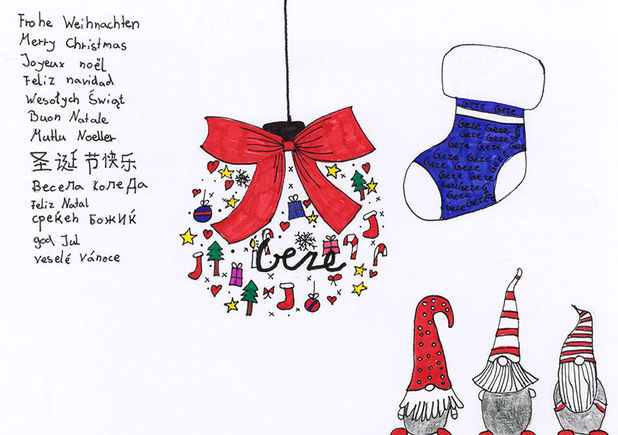 Frohe Weihnachten
Merry Christmas
Joyeux noël
Feliz navidad
Wesołych Świąt
Buon Natale
Mutlu Noeller
圣诞节快乐
Весела Коледа
Feliz Natal
срекен Божиќ
god Jul
veselé Vánoce
Geze
Geze Geze
Geze Geze
Geze Geze
Geze Geze
Geze Geze
Geze Geze
Geze Geze
Geze Geze